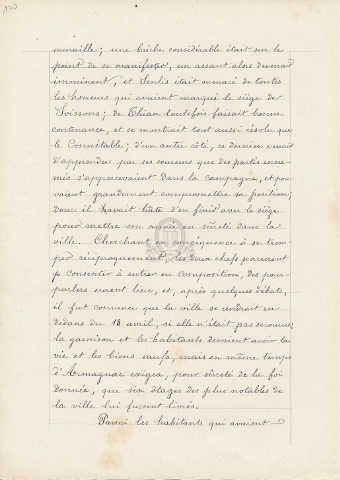 muraille; une brèche considérable était sur le
point de se manifester, un assaut alors devenait
imminent, et Senlis était menacé de toutes
les horreurs qui avaient marqué le siège de
Soissons; de Thian toutefois faisait bonne
contenance, et se montrait tout aussi résolu que
le Connétable; d'un autre côté, ce dernier venait
d'apprendre par ses coureurs que des partis enne-
mis s'approchaient dans la campagne, et pou-
vaient grandement compromettre sa position;
donc il avait hâte d'en finir avec le siège
pour mettre son armée en sûreté dans la
ville. Cherchant en conséquence à se trom-
per réciproquement, les deux chefs parurent
consentir à entrer en composition, des pour-
parlers eurent lieu, et, après quelques débats,
il fut convenu que la ville se rendrait en
dedans du 18 avril, si elle n'était pas secourue;
la garnison et les habitants devaient avoir la
vie et les biens saufs, mais en même temps
d'Armagnac exigea, pour sûreté de la foi
donnée, que six ôtages des plus notables de
la ville lui fussent livrés.
Parmi les habitants qui avaient